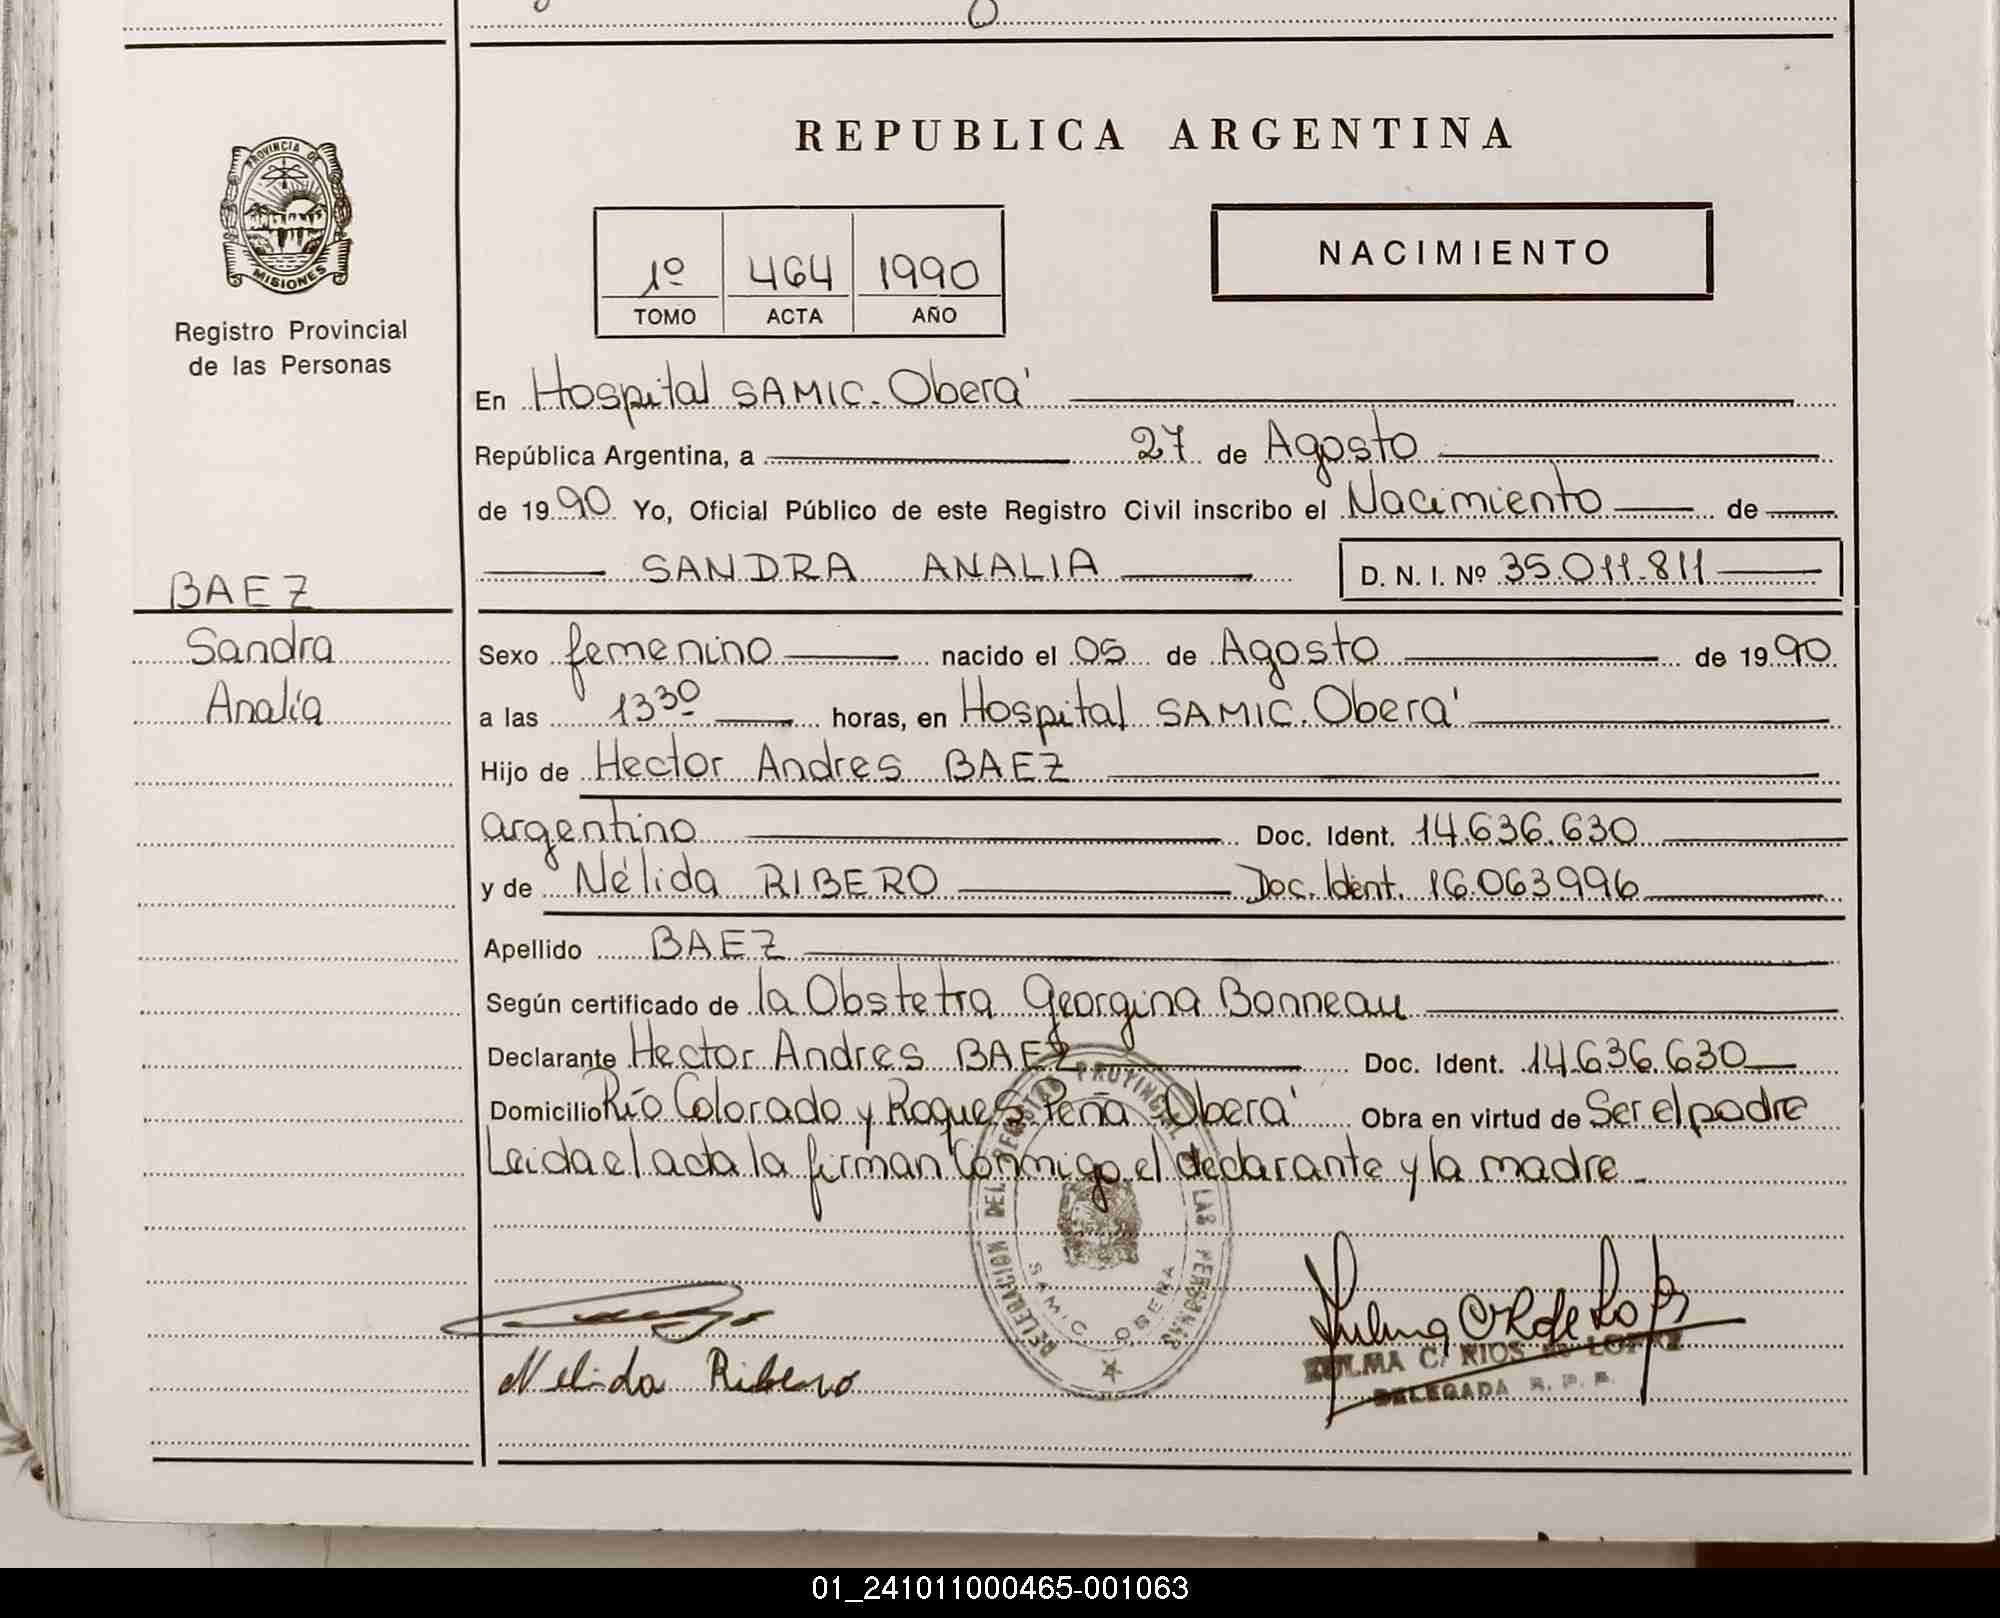 REPUBLICA ARGENTINA
PROVINCIA DE
MISIONES
Registro Provincial
de las Personas
1º 464 1990
TOMO ACTA AÑO
NACIMIENTO
En Hospital SAMIC. Oberá
República Argentina, a 27 de Agosto
de 1990 Yo, Oficial Público de este Registro Civil inscribo el Nacimiento de
SANDRA ANALIA D. N. I. Nº 35.011.811
BAEZ
Sandra
Analía
Sexo femenino nacido el 05 de Agosto de 1990
a las 1330 horas, en Hospital SAMIC. Oberá
Hijo de Hector Andres BAEZ
argentino Doc. Ident. 14.636.630
y de Nélida RIBERO Doc. Ident. 16.063996
Apellido BAEZ
Según certificado de la Obstetra Georgina Bonneau
Declarante Hector Andres BAEZ Doc. Ident. 14.636.630
Domicilio Río Colorado y Roque S. Peña Oberá Obra en virtud de Ser el padre
Leida el acta la firman conmigo el declarante y la madre
DELEGACION DEL REGISTRO PROVINCIAL DE LAS PERSONAS
SAMIC OBERA
Nelida Ribero
ZULMA C. RIOS de LOPEZ
DELEGADA R. P. P.
01_241011000465-001063